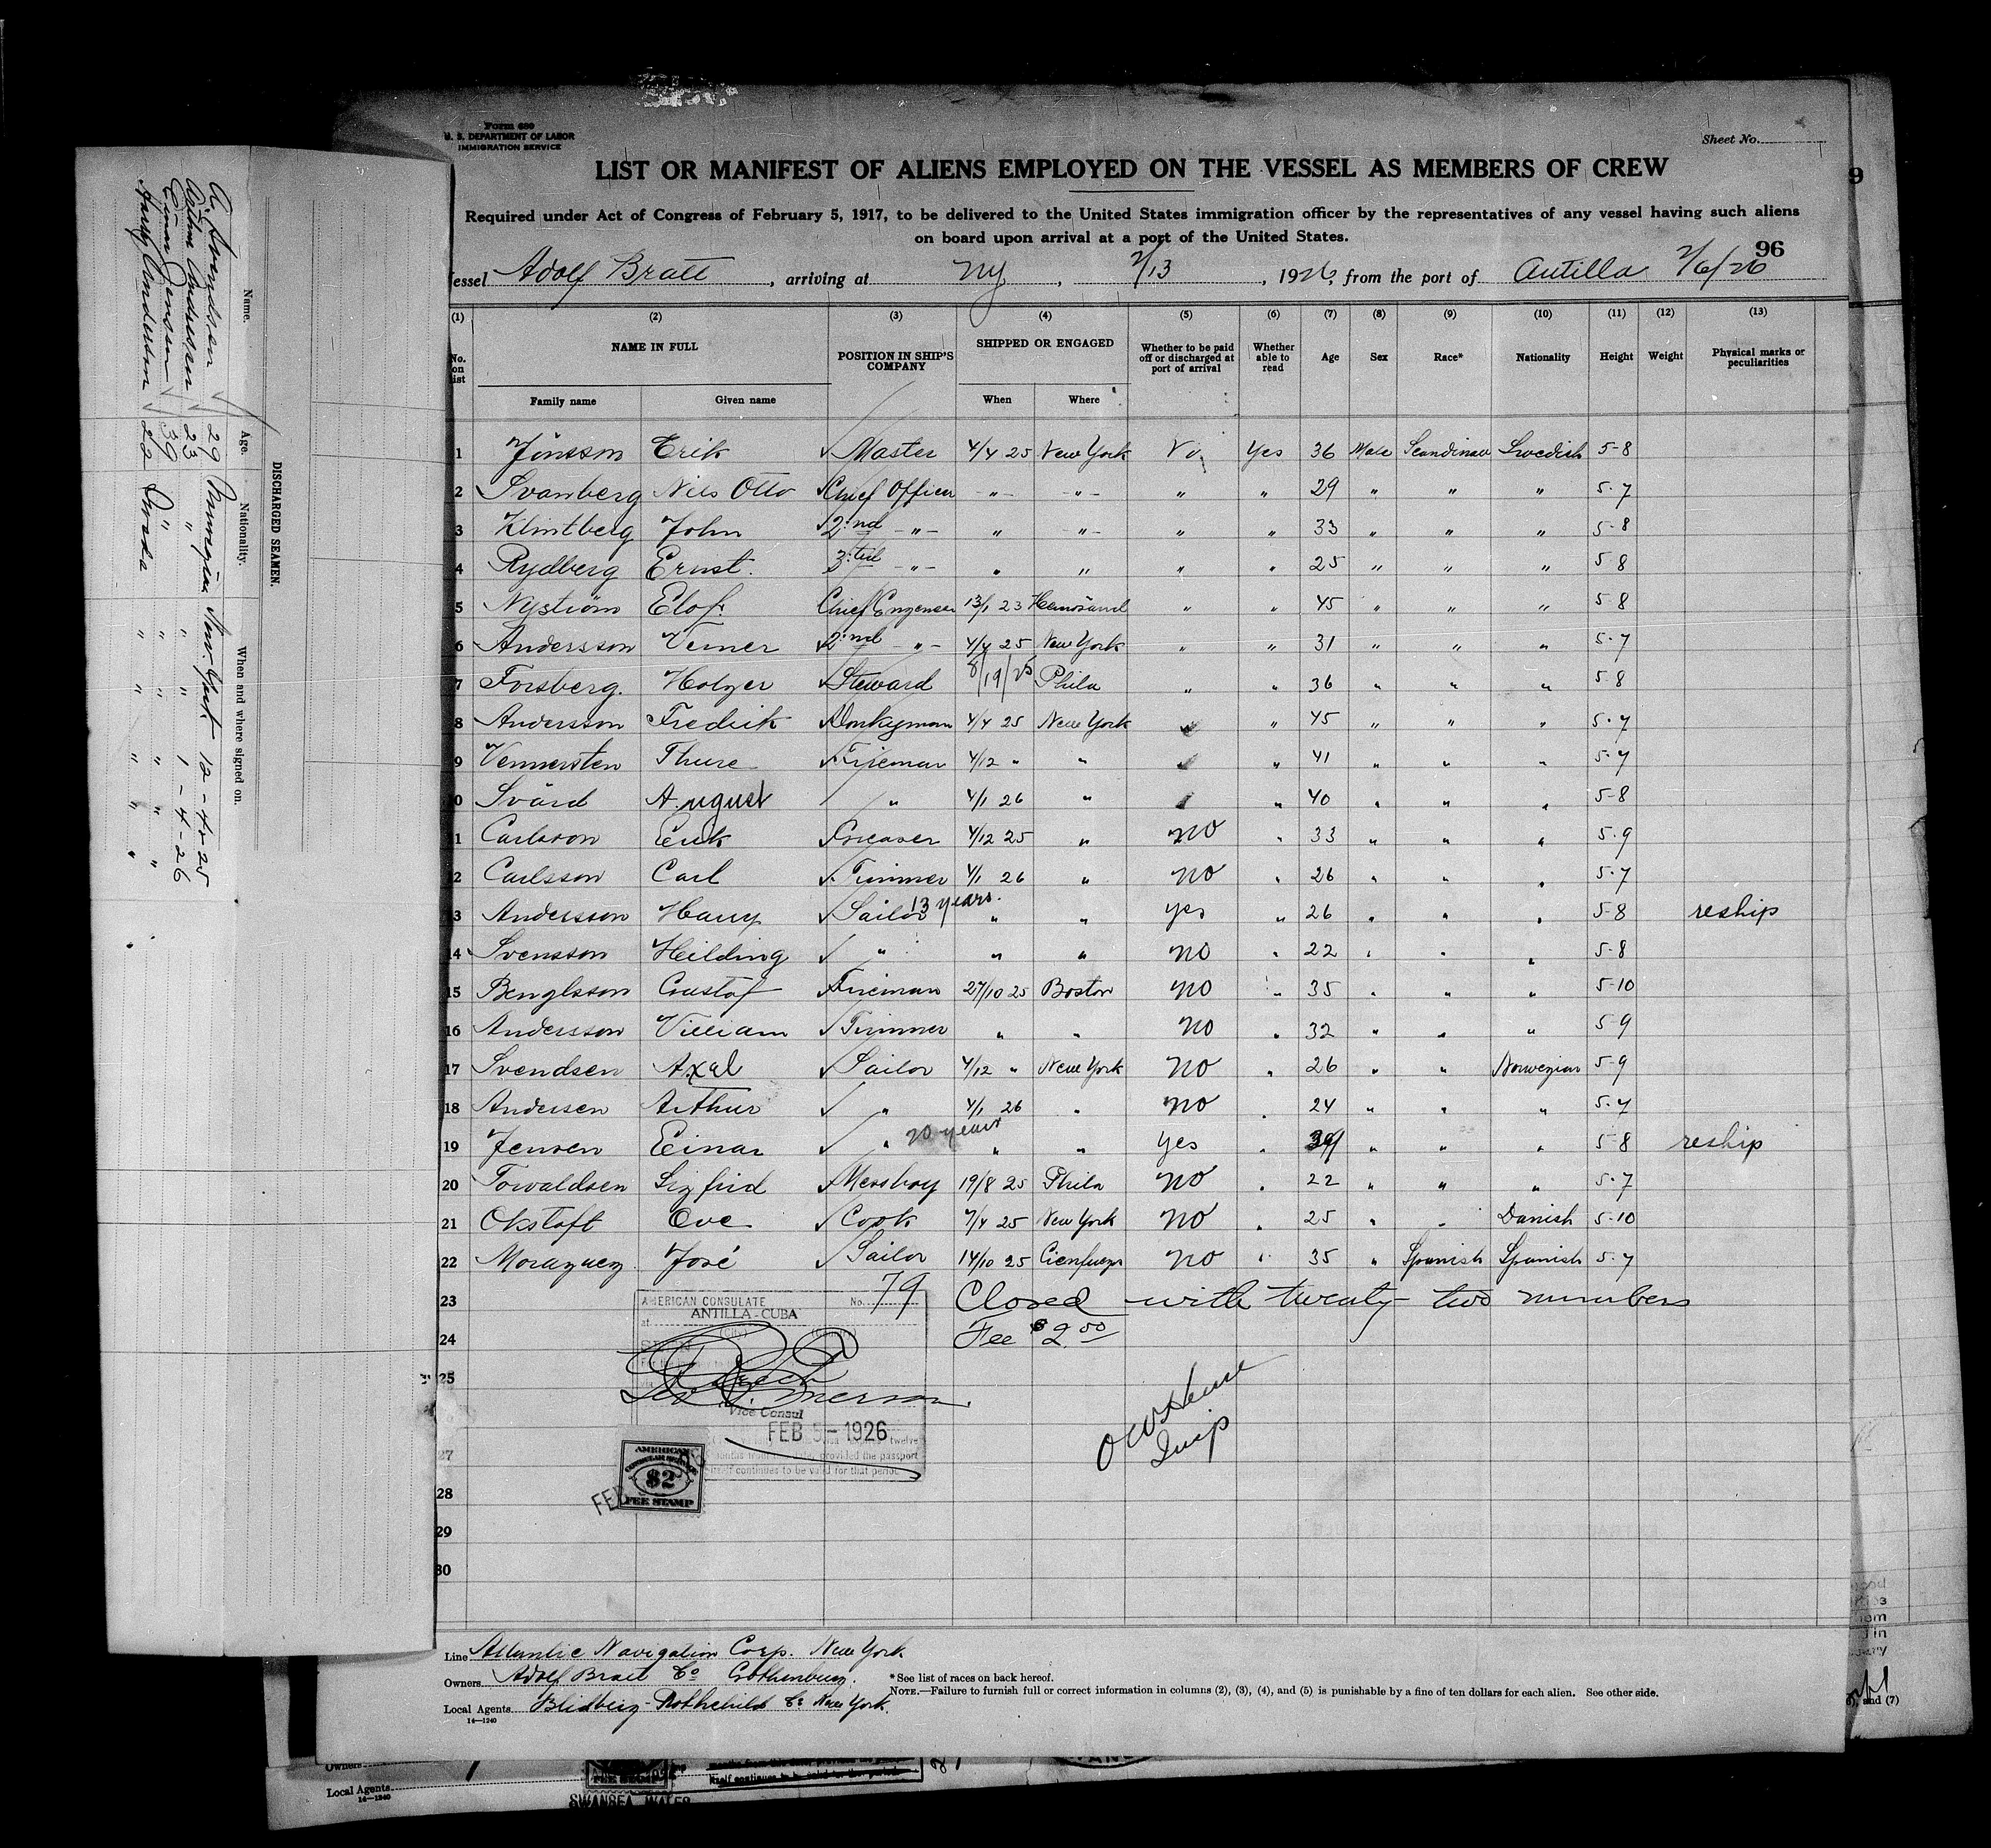 Form 680
U. S. DEPARTMENT OF LABOR
IMMIGRATION SERVICE
Sheet No.
LIST OR MANIFEST OF ALIENS EMPLOYED ON THE VESSEL AS MEMBERS OF CREW
Required under Act of Congress of February 5, 1917, to be delivered to the United States immigration officer by the representatives of any vessel having such aliens
on board upon arrival at a port of the United States.
96
9
essel Adolf Bratt, arriving at NY, 2/13, 1926, from the port of Antilla 2/6/26
(1) (2) (3) (4) (5) (6) (7) (8) (9) (10) (11) (12) (13)
No. on list NAME IN FULL Family name Given name POSITION IN SHIP'S COMPANY SHIPPED OR ENGAGED When Where Whether to be paid off or discharged at port of arrival Whether able to read Age Sex Race* Nationality Height Weight Physical marks or peculiarities
1 Jönsson Erik Master 4/4 25 New York No Yes 36 Male Scandinav Swedish 5-8
2 Svanberg Nils Otto Chief Officer -"- -"- " " 29 " " " 5-7
3 Klintberg John 2:nd -"- " -"- " " 33 " " " 5-8
4 Rydberg Ernst. 3:td -"- " " " " 25 " " " 5-8
5 Nyström Elof. Chief Engeneer 13/1 23 Hernösand " " 45 " " " 5-8
6 Andersson Verner 2:nd -"- 4/4 25 New York " " 31 " " " 5-7
7 Forsberg. Holger Steward 8/19/25 Phila " " 36 " " " 5-8
8 Andersson Fredrik Donkeyman 4/4 25 New York " " 45 " " " 5-7
9 Vennersten Thure Fireman 4/12 " " " " 41 " " " 5-7
0 Svärd August " 4/1 26 " " 40 " " " 5-8
1 Carlsson Erik Greaser 4/12 25 " no " 33 " " " 5-9
2 Carlsson Carl Trimmer 4/1 26 " no " 26 " " " 5-7
3 Andersson Harry Sailor 13 years. " " yes " 26 " " " 5-8 reship
14 Svensson Heilding " " " no " 22 " " " 5-8
15 Bengtsson Gustof Fireman 27/10 25 Boston no " 35 " " " 5-10
16 Andersson Villiam Trimmer " " no " 32 " " " 5-9
17 Svendsen Axel Sailor 4/12 " New York no " 26 " " Norwegian 5-9
18 Andersen Arthur " 4/1 26 " no " 24 " " " 5-7
19 Jensen Einar " 20 years " " yes " 39 " " " 5-8 reship
20 Torvaldsen Sigfrid Messboy 19/8 25 Phila no " 22 " " " 5-7
21 Okstoft Ove Cook 7/4 25 New York no " 25 " " Danish 5-10
22 Moraguez José Sailor 14/10 25 Cienfuegos no " 35 " Spanish Spanish 5-7
23 Closed with twenty two numbers
24 Fee $2.00
25
27
28
29
30
AMERICAN CONSULATE No. 79
at ANTILLA-CUBA
Vice Consul
FEB 5 - 1926
twelve
provided the passport
itself continues to be valid for that period.
AMERICAN
CONSULAR SERVICE
$2
FEE STAMP
Insp
Line Atlantic Navigation Corp. New York
Owners Adolf Bratt Co Gothenburg.
Local Agents Blidberg Rothchild Co New York.
14—1240
*See list of races on back hereof.
NOTE.—Failure to furnish full or correct information in columns (2), (3), (4), and (5) is punishable by a fine of ten dollars for each alien. See other side.
DISCHARGED SEAMEN.
Name. Age. Nationality. When and where signed on.
A. Svendsen 29 Norwegian New York 12-4-25
Arthur Andersen 23 " " " 1-4-26
Einar Jensen 39 " " " " "
Harry Anderson 29 Swede " " " "
Owners
Local Agents
14—1240
FEE STAMP
SWANSEA, WALES
itself continues to be valid for that period.
and (7)